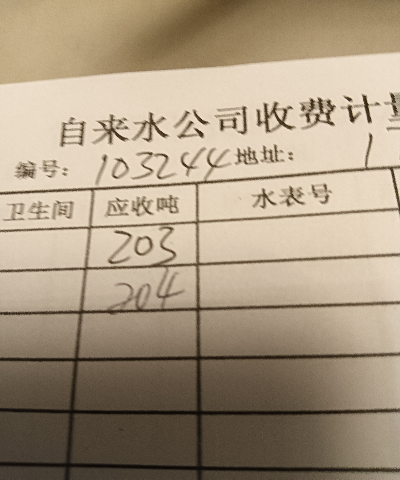 自来水公司收费计
编号: 103244 地址: 1
卫生间 应收吨 水表号
203
204